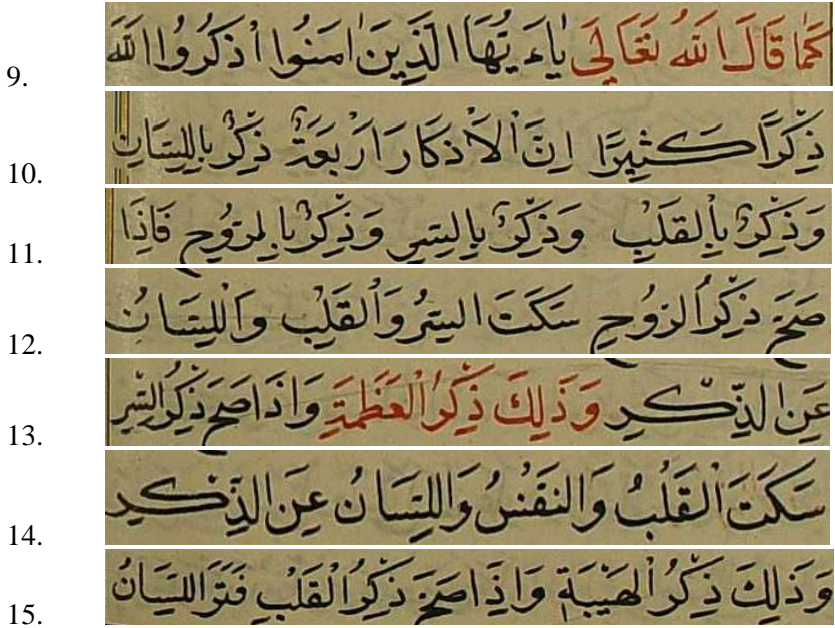 9. كَمَا قَالَ اللهُ تَعَالَى يٰاءَيُّهَا الَّذِينَ اٰمَنُوا اذْكُرُوا اللهَ
10. ذِكْرًا كَثِيرًا اِنَّ اْلاَذكَارَ اَرْبَعَةٌ ذِكْرٌ بِاللِّسَانِ
11. وَذِكْرٌ بِاْلقَلْبِ وَذِكْرٌ بِالسِّرِ وَذِكْرٌ بِالرّوُحِ فَاِذَا
12. صَحَّ ذِكْرُ الرّوُحِ سَكَتَ السِّرُ وَاْلقَلْبُ وَاللِّسَانُ
13. عَنِ الذِّكْرِ وَذٰلِكَ ذِكْرُ اْلعَظَمَةِ وَاِذَا صَحَّ ذِكْرُ السِّرِ
14. سَكَتَ اْلقَلْبُ وَالنَّفْسُ وَاللِّسَانُ عَنِ الذِّكْرِ
15. وَذٰلِكَ ذِكْرُ اْلهَيْبَةِ وَاِذَا صَحَّ ذِكْرُ اْلقَلْبِ فَتَرَ اللِّسَانُ